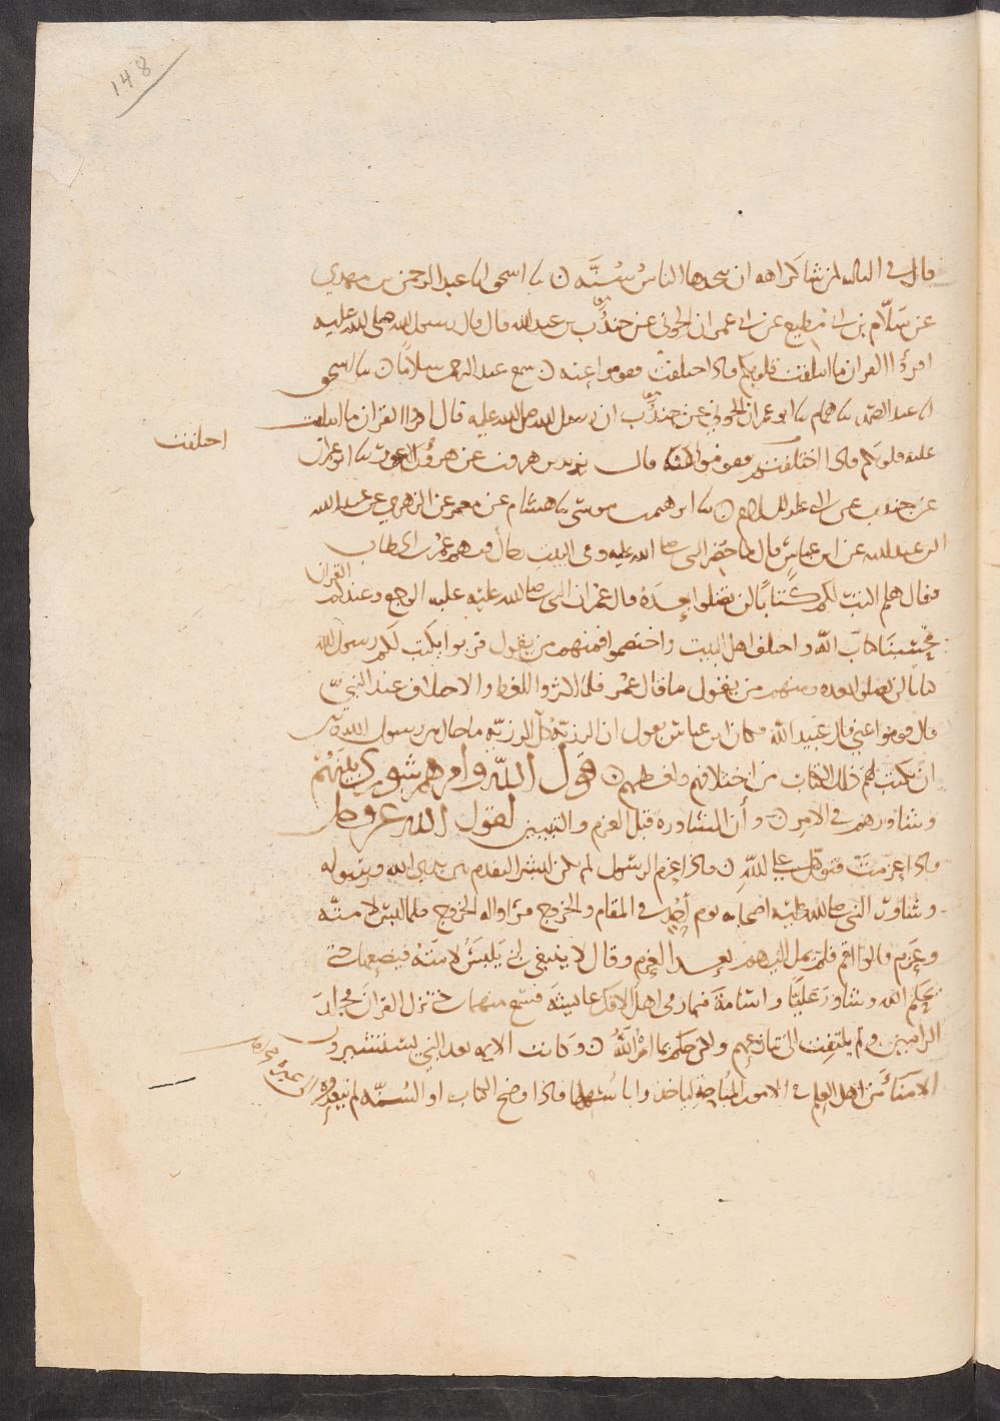 148
قال في الثالثة لمن شا كراهة ان يتخذها الناس سُنَّة ن ثنا اسحق انا عبد الرحمن بن مهدي
عن سَلّام بن ابي مطيع عن ابي عمران الجوني عن جندُب بن عبد الله قال قال رسول الله صلى الله عليه
اقرؤا القران ما ائتلفت قلوبكم فاذا اختلفت فقوموا عنه ن سمع عبد الرحمن سلاما ن ثنا اسحق
انا عبد الصمد ثنا همام ثنا ابو عمران الجوني عن جندُب ان رسول الله صلى الله عليه قال اقرؤا القران ما ائتلفت
عليه قلوبكم فاذا اختلفتم فقوموا عنه قال يزيد بن هرون عن هرون الاعور ثنا ابو عمران
اختلفت
عن جندب عن النبي عليه السلام ن ثنا ابرهيم بن موسَى ثنا هشام عن معمر عن الزهري عن عبيد الله
ابن عبد الله عن ابن عباس قال لما حُضِر النبي صلى الله عليه وفي البيت رجال فيهم عُمَر بن الخطاب
فقال هلم اكتب لكم كتابًا لن تضلوا بعدَهُ قال عُمَر ان النبي صلى الله عليه غلبه الوجع وعندكم القران
فحَسْبنَا كتاب الله واختلف اهل البيت واختصموا فمنهم من يقول قربوا يكتب لكم رسول الله
كتابا لن تضلوا بعده ومنهم من يقول ما قال عُمَر فلما اكثروا اللغط والاختلاف عند النبيّ
قال قوموا عني قال عُبَيد الله فكان ابن عباس يقول ان الرزيّة كلّ الرزيّة ما حال بين رسول الله وبين
ان يكتب لهم ذلك الكتاب من اختلافهم ولغطهم ن قول الله وامرهم شورى بينهم
وشاورهم في الامر ن وأن المشاورة قبل العزم والتبيين لقول الله عز وجل
فاذا عزمتَ فتوكل على اللهِ ن فاذا عزم الرسول لم يكن لبشر التقدم بين يدي الله ورسوله
وشاور النبي صلى الله عليه اصحابه يوم أُحُدٍ في المقام والخروج فرَاوا له الخروج فلما لبس لامته
وعزم قالوا اقم فلم يمل اليهم بعد العزم وقال لا ينبغي لنبي يَلبَسُ لامَتَهُ فيضعها حتى
يحكم الله وشاور عَليًّا واسَامة فيما رمى اهل الافك عائشةَ فسمع منهما حتى نزل القران فجلدَ
الرامين ولم يلتفِت الى تنازعهم ولكن حكم بما امرَهُ اللهُ ن وكانت الايمة بعد النبي يستشيرون
الامناءَ من اهل العلم في الامور المُبَاحَةِ لياخذوا باسْهلها فاذا وضح الكتاب او السُّنّة لم يتعدوه الى غيره